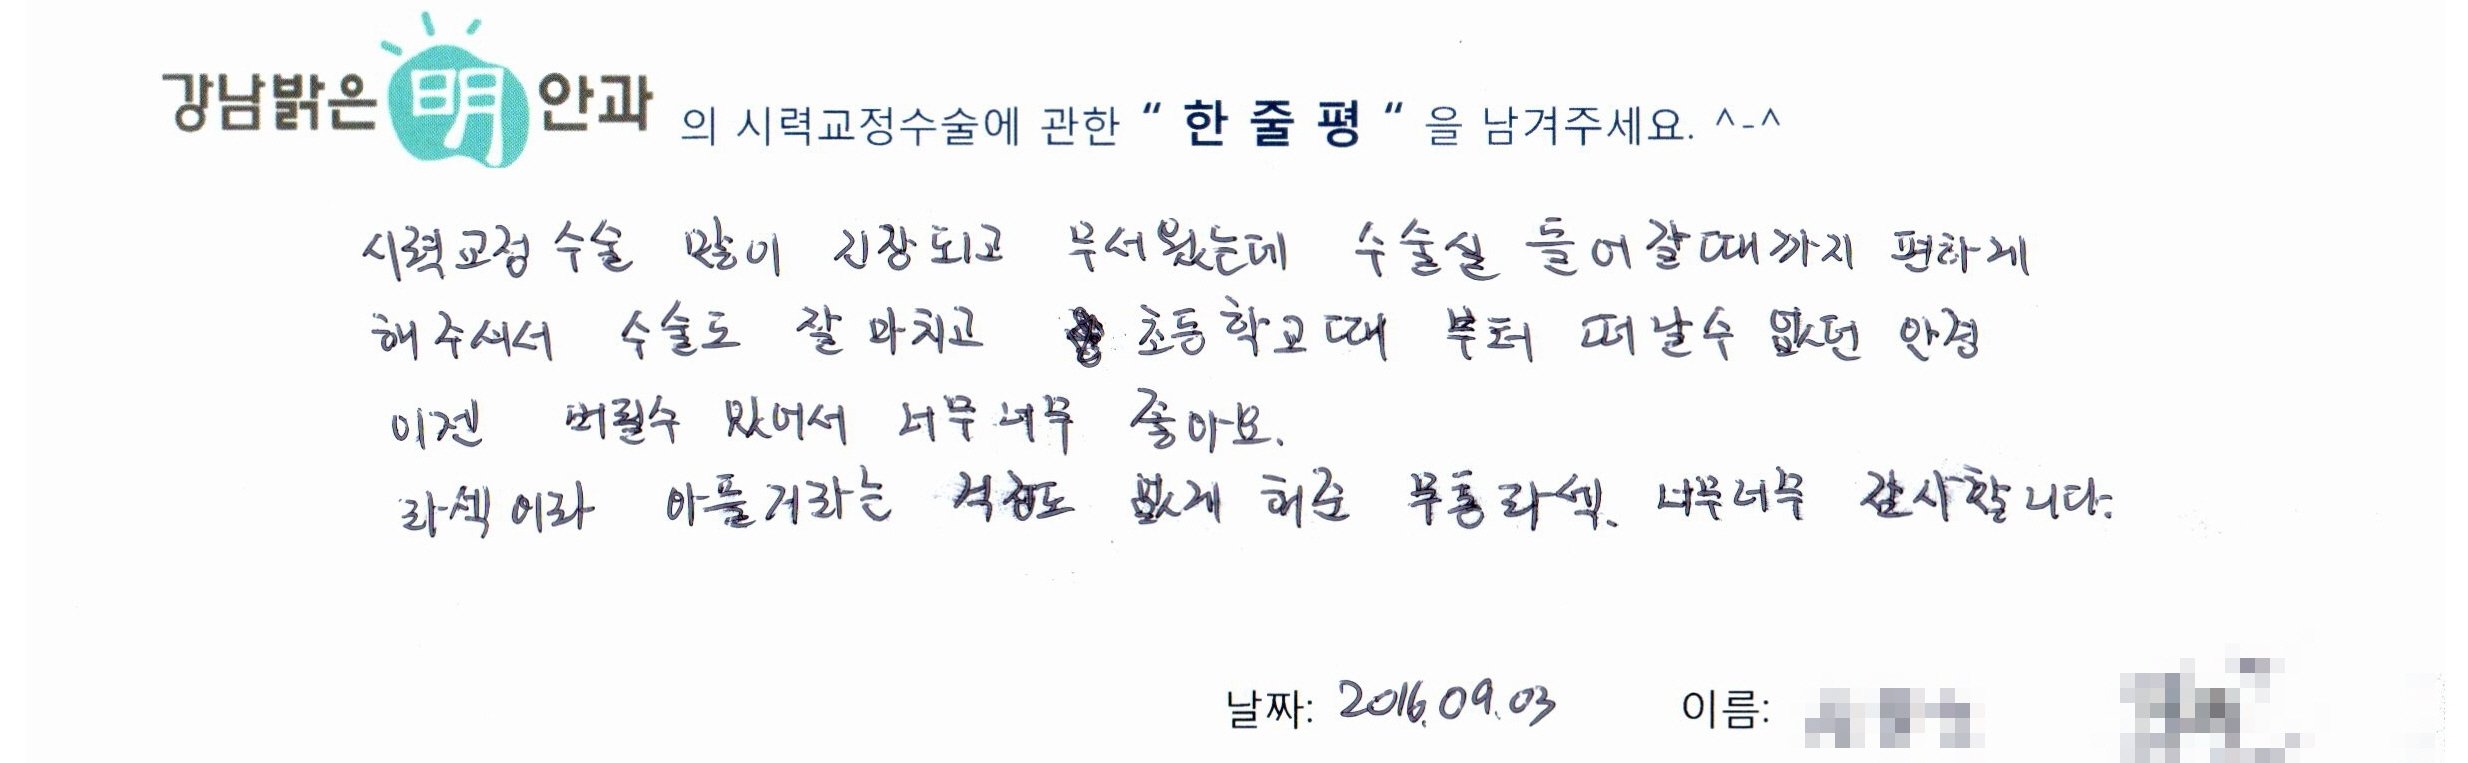 강남밝은明안과 의 시력교정수술에 관한 “ 한 줄 평 “ 을 남겨주세요. ^-^
시력교정 수술 많이 긴장되고 무서웠는데 수술실 들어갈때까지 편하게
해주셔서 수술도 잘 마치고 초등학교때 부터 떠날수 없던 안경
이젠 버릴수 있어서 너무너무 좋아요.
라섹이라 아플거라는 걱정도 없게 해준 무통라섹. 너무너무 감사합니다.
날짜: 2016.09.03 이름: